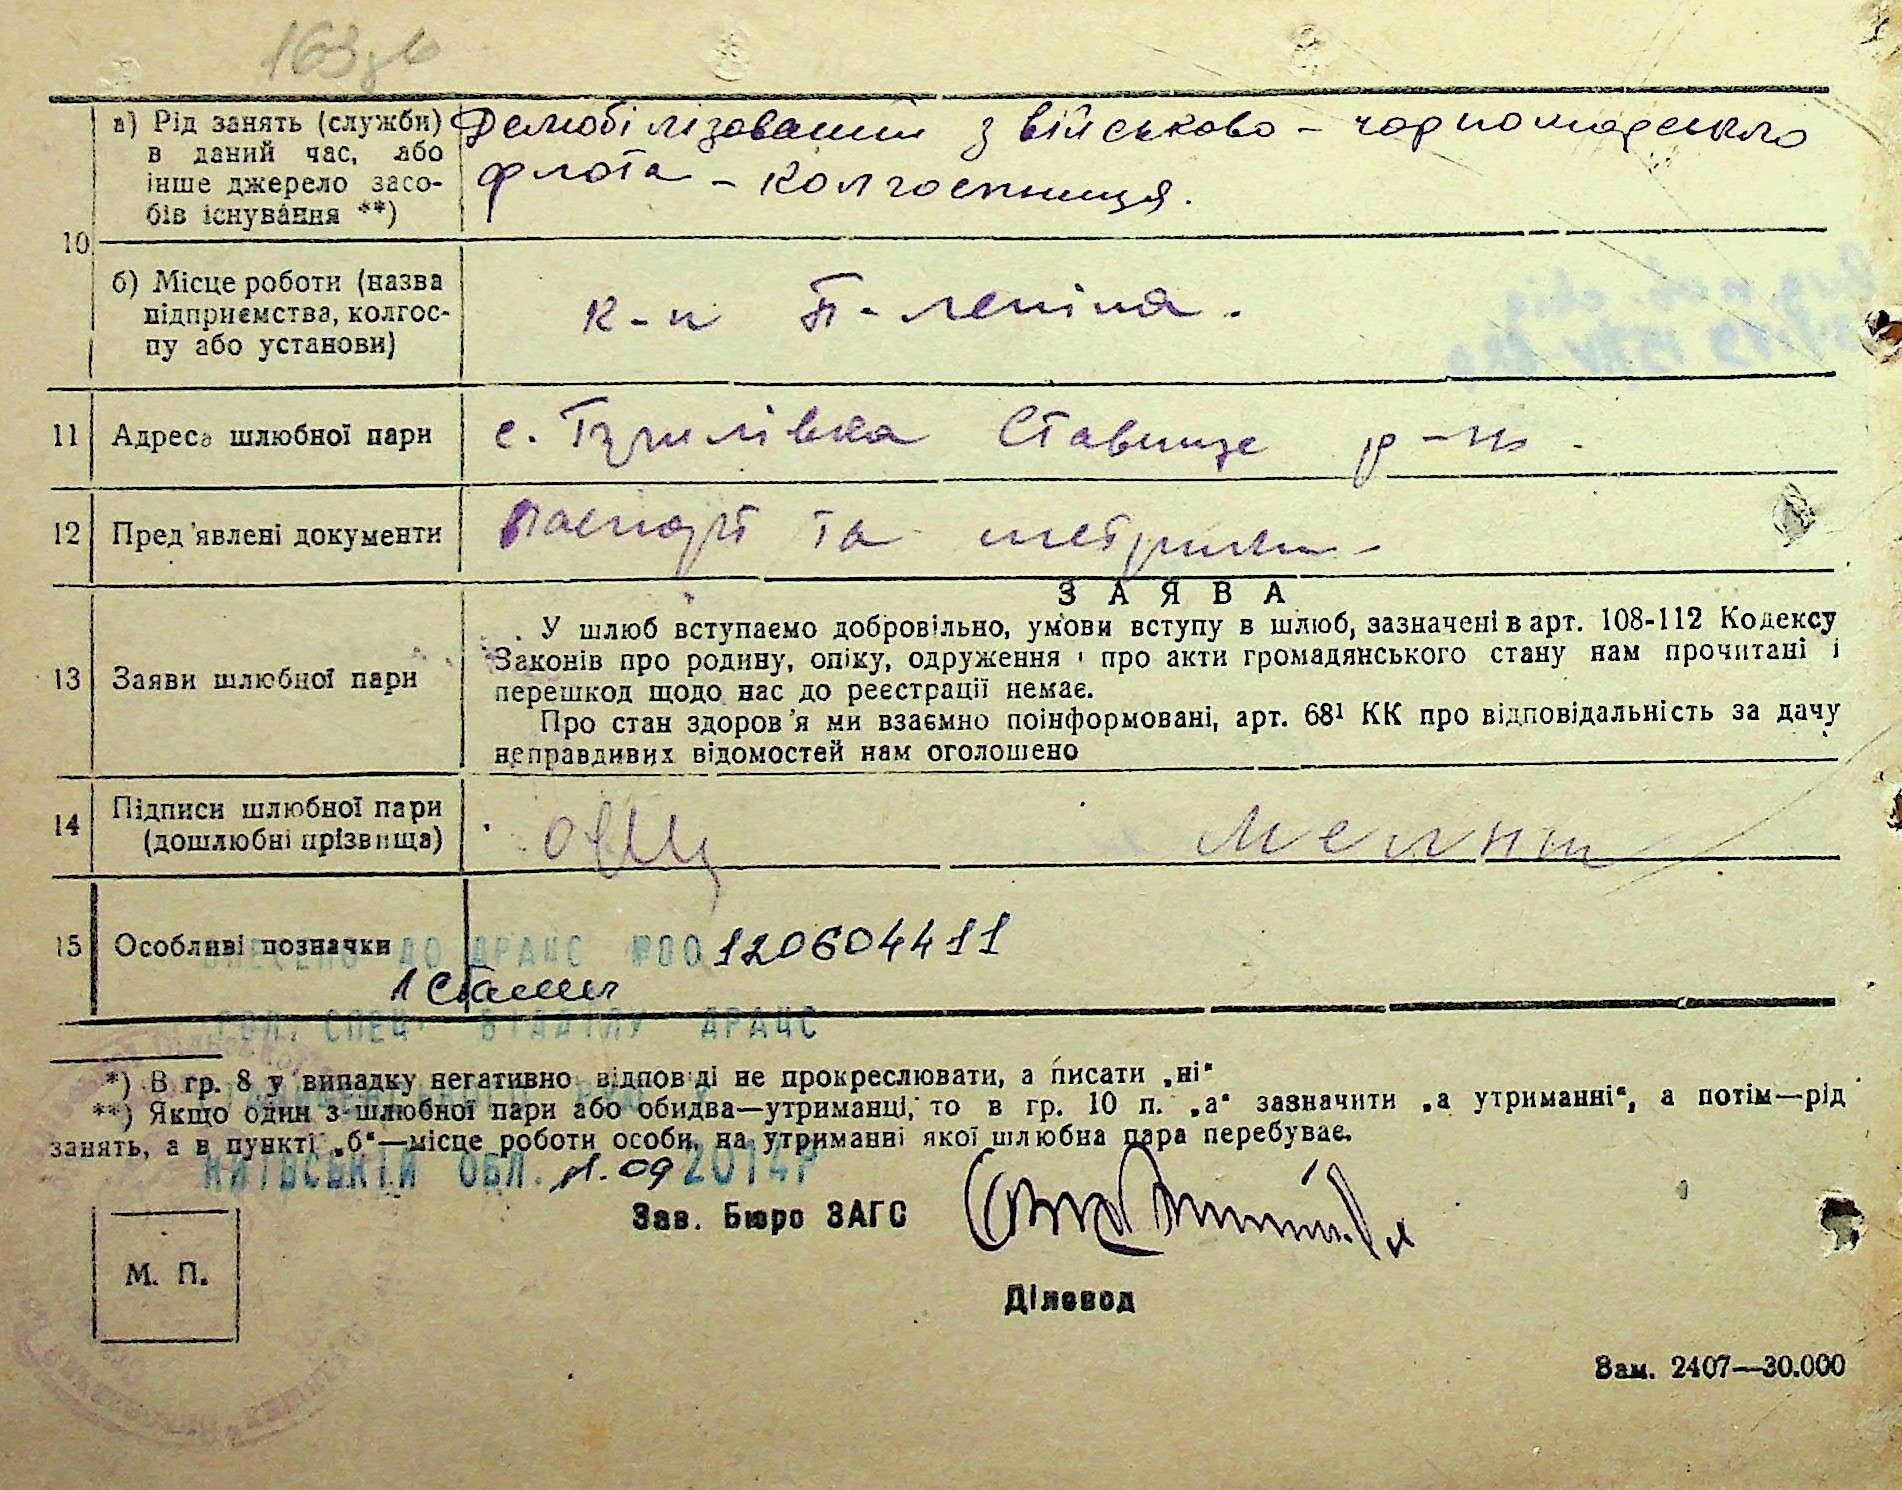 163зв
10
а) Рід занять (служби)
в даний час, або
інше джерело засо-
бів існування **)
Демобілізований з військово-чорноморського
флота - колгоспниця.
б) Місце роботи (назва
підприємства, колгос-
пу або установи)
к-п Леніна.
11 Адреса шлюбної пари
с. Ставище р-н.
12 Пред'явлені документи
Паспорт та метрики
13 Заяви шлюбної пари
ЗАЯВА
У шлюб вступаємо добровільно, умови вступу в шлюб, зазначені в арт. 108-112 Кодексу
Законів про родину, опіку, одруження і про акти громадянського стану нам прочитані і
перешкод щодо нас до реєстрації немає.
Про стан здоров'я ми взаємно поінформовані, арт. 68¹ КК про відповідальність за дачу
неправдивих відомостей нам оголошено
14 Підписи шлюбної пари
(дошлюбні прізвища)
15 Особливі позначки
ВНЕСЕНО ДО ДРАЦС №00120604411
ГОЛ. СПЕЦ. ВІДДІЛУ ДРАЦС
*) В гр. 8 у випадку негативно відповіді не прокреслювати, а писати „ні“
**) Якщо один з шлюбної пари або обидва—утриманці, то в гр. 10 п. „а“ зазначити „а утриманні“, а потім—рід
занять, а в пункті „б“—місце роботи особи, на утриманні якої шлюбна пара перебуває.
КИЇВСЬКІЙ ОБЛ. 09 2014Р
Зав. Бюро ЗАГС
М. П.
Діловод
Зам. 2407—30.000